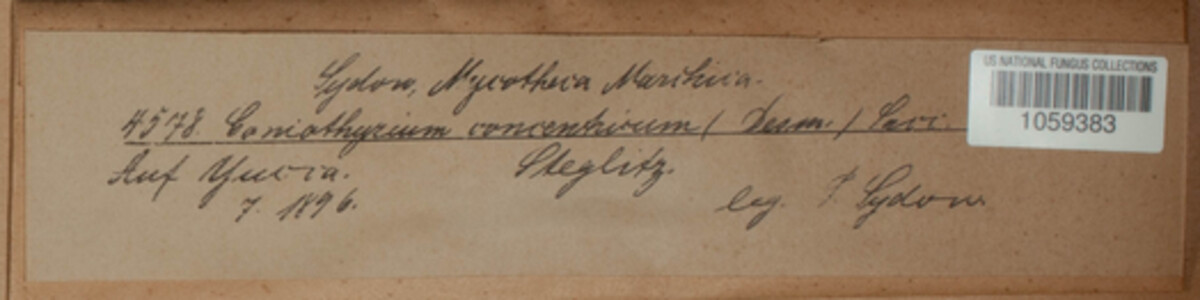 Sydow, Mycotheca Marchica.
4578. Coniothyrium concentricum (Desm.) Sacc.
Auf Yucca. Steglitz.
7. 1896. leg. P. Sydow.
US NATIONAL FUNGUS COLLECTIONS
1059383